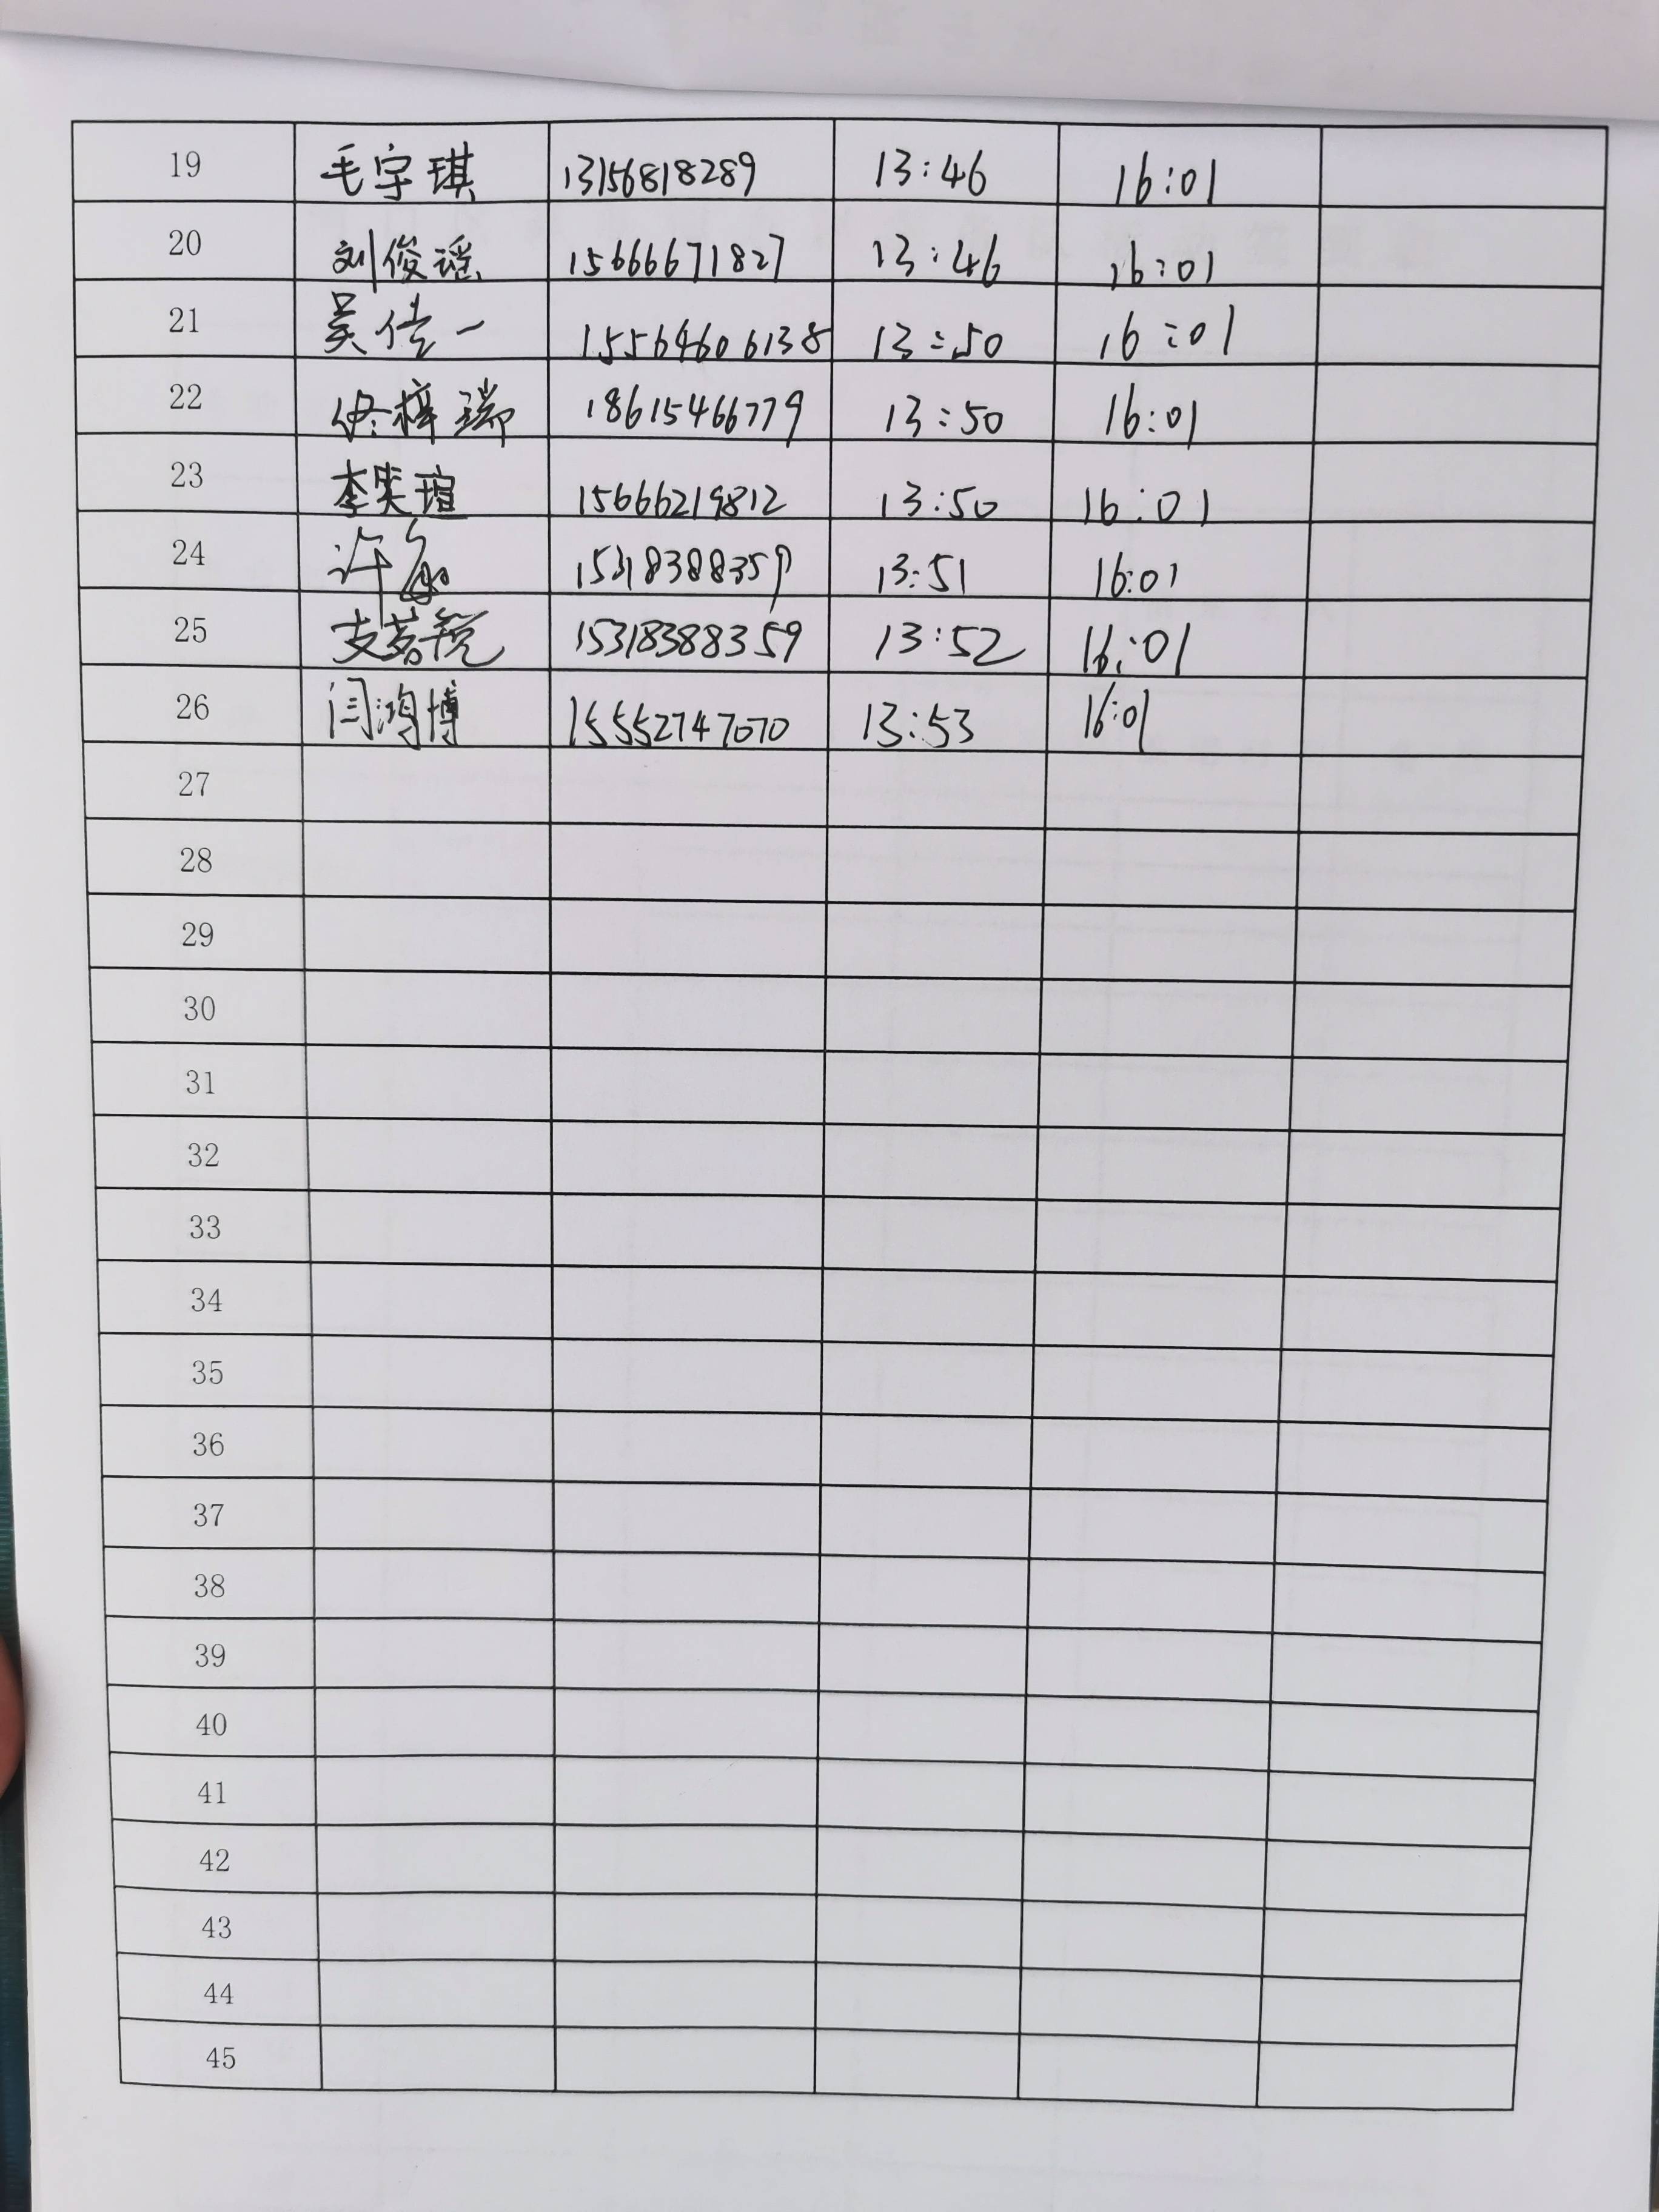 19 毛宇琪 13156818289 13:46 16:01
20 刘俊谣 15666671827 13:46 16:01
21 吴佳一 15564606138 13:50 16:01
22 佟梓瑞 18615466779 13:50 16:01
23 李奕瑄 15666219812 13:50 16:01
24 许 15318388359 13:51 16:01
25 支若 15318388359 13:52 16:01
26 闫鸿博 15552747070 13:53 16:01
27
28
29
30
31
32
33
34
35
36
37
38
39
40
41
42
43
44
45